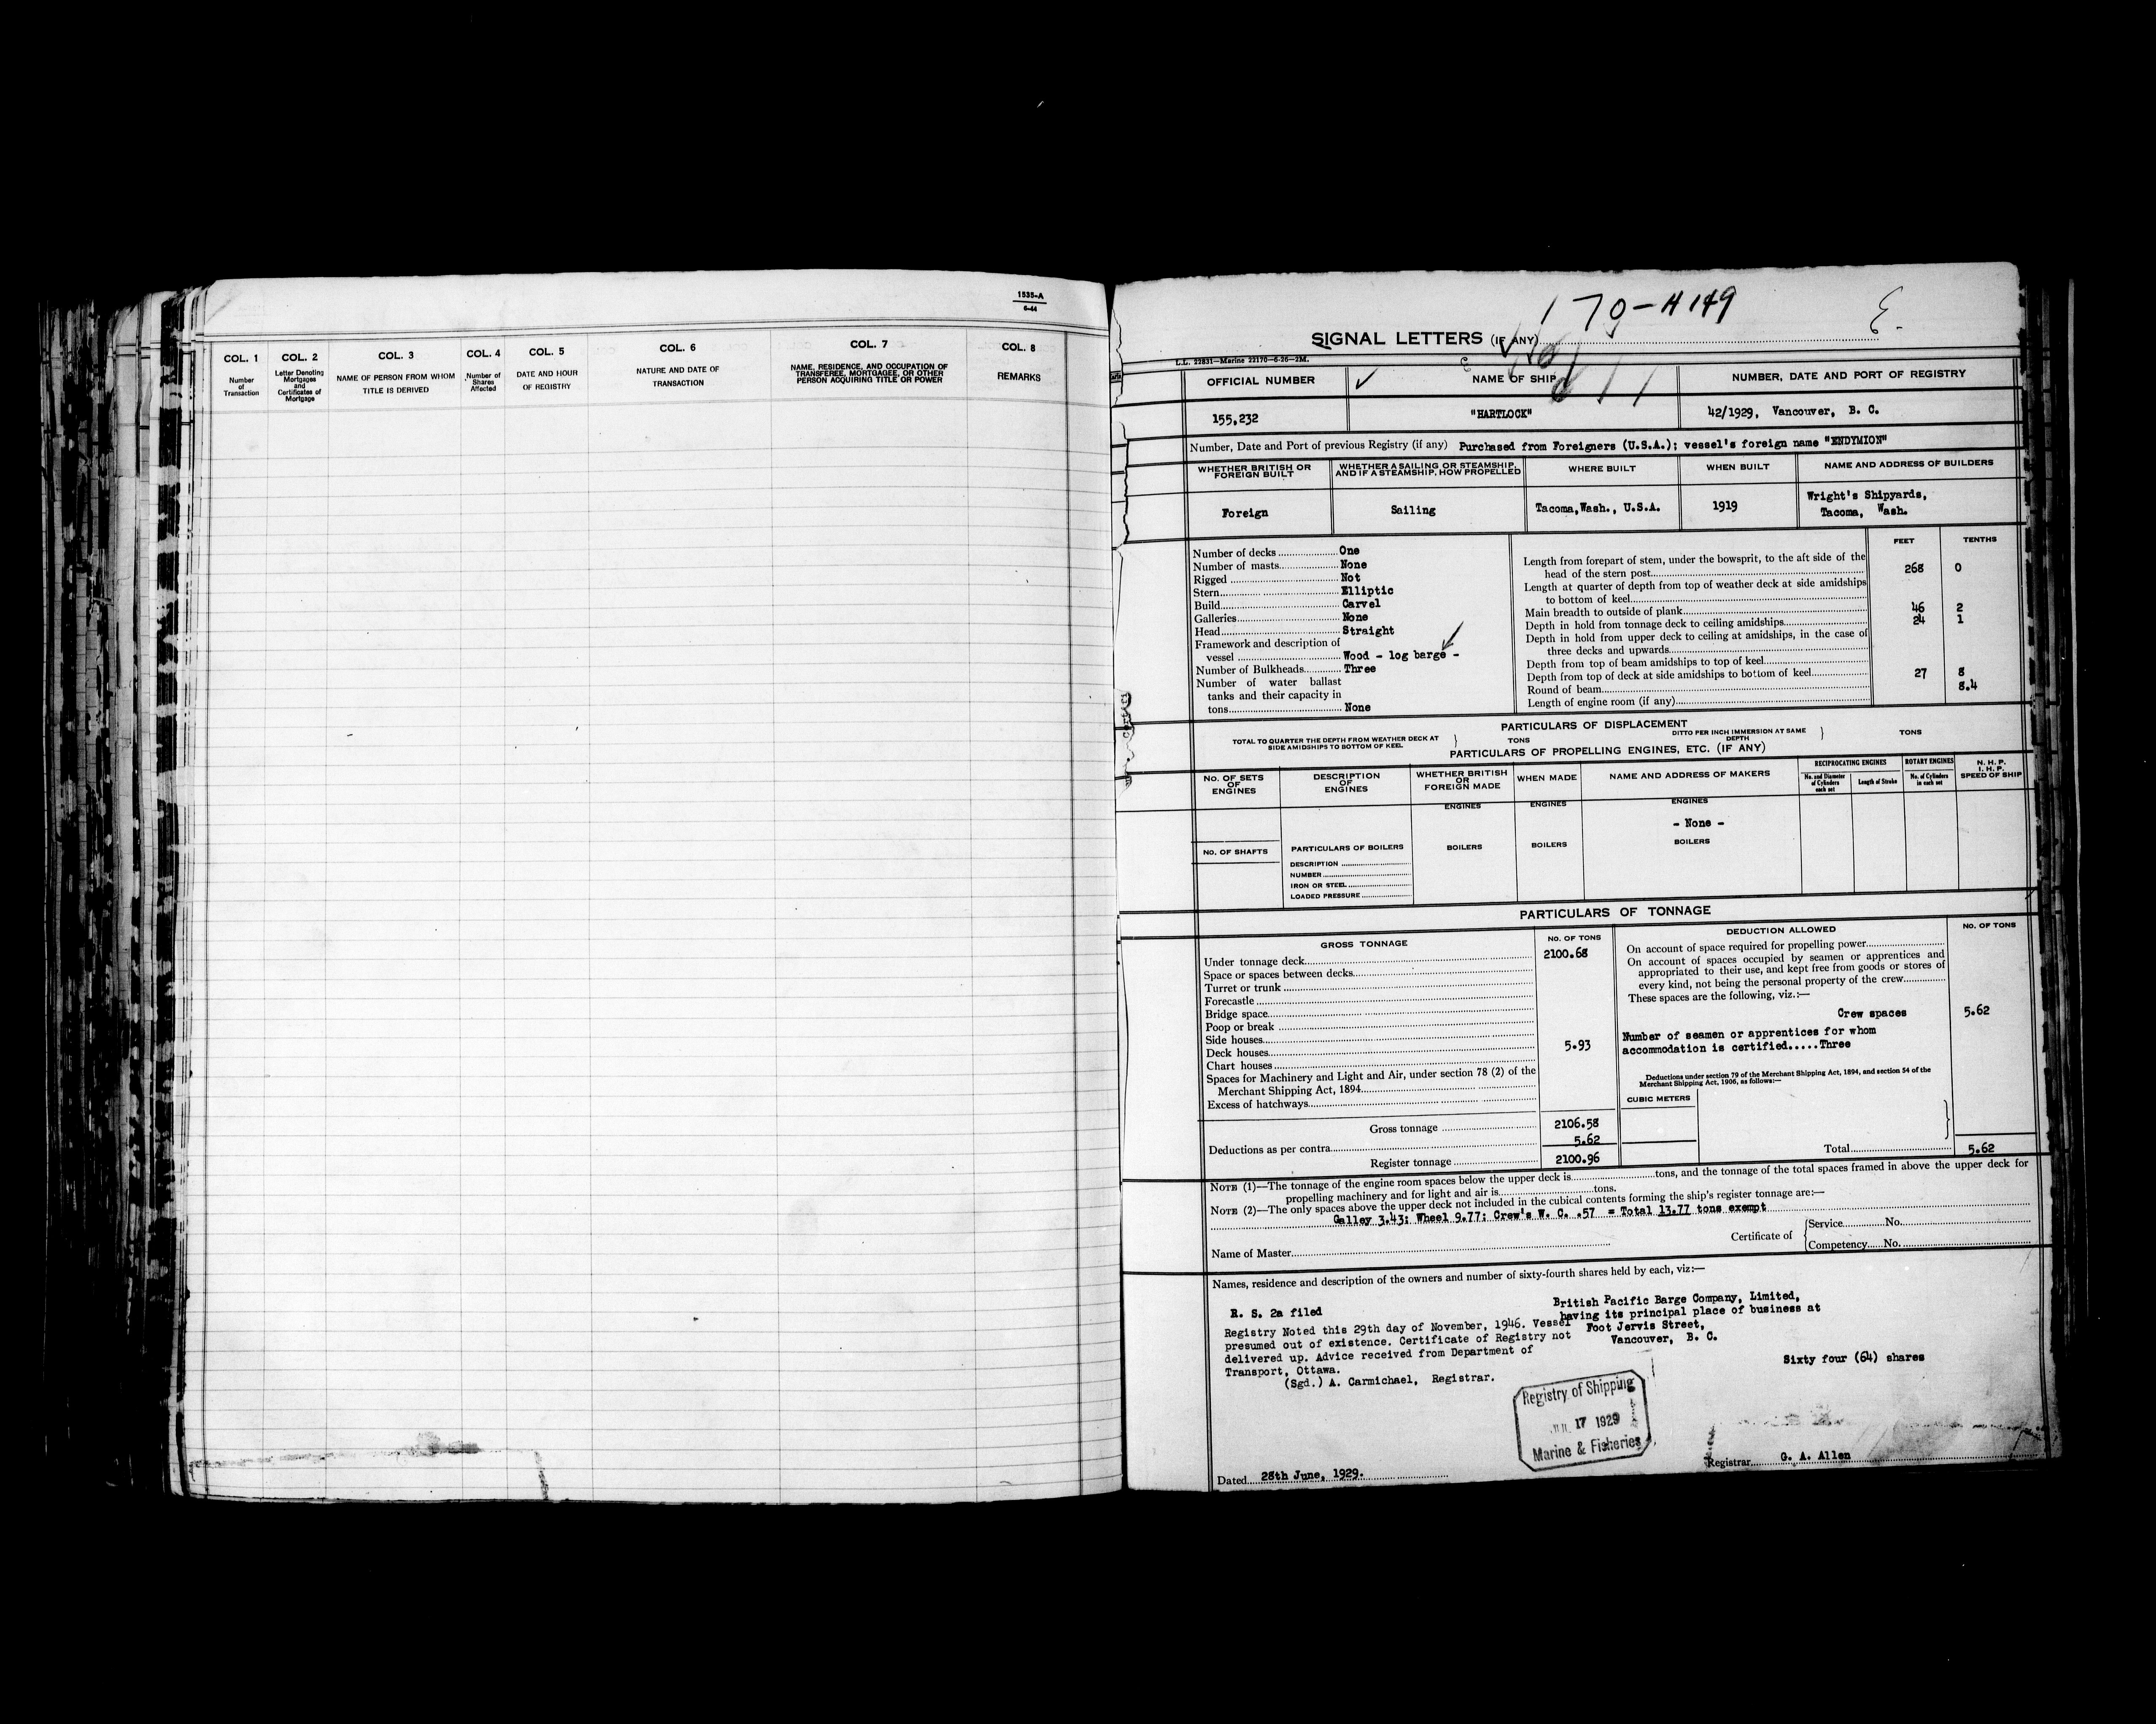 1535-A
6-44
COL. 1
Number
of
Transaction
COL. 2
Letter Denoting
Mortgages
and
Certificates of
Mortgage
COL. 3
NAME OF PERSON FROM WHOM
TITLE IS DERIVED
COL. 4
Number of
Shares
Affected
COL. 5
DATE AND HOUR
OF REGISTRY
COL. 6
NATURE AND DATE OF
TRANSACTION
COL. 7
NAME, RESIDENCE, AND OCCUPATION OF
TRANSFEREE, MORTGAGEE, OR OTHER
PERSON ACQUIRING TITLE OR POWER
COL. 8
REMARKS
170-H149
SIGNAL LETTERS (IF ANY)
L.L. 22831—Marine 22170—6-26—2M.
OFFICIAL NUMBER
NAME OF SHIP
NUMBER, DATE AND PORT OF REGISTRY
155,232
"HARTLOCK"
42/1929, Vancouver, B. C.
Number, Date and Port of previous Registry (if any) Purchased from Foreigners (U.S.A.); vessel's foreign name "ENDYMION"
WHETHER BRITISH OR
FOREIGN BUILT
WHETHER A SAILING OR STEAMSHIP,
AND IF A STEAMSHIP, HOW PROPELLED
WHERE BUILT
WHEN BUILT
NAME AND ADDRESS OF BUILDERS
Foreign
Sailing
Tacoma,Wash., U.S.A.
1919
Wright's Shipyards,
Tacoma, Wash.
Number of decks One
Number of masts None
Rigged Not
Stern Elliptic
Build Carvel
Galleries None
Head Straight
Framework and description of
vessel Wood - log barge -
Number of Bulkheads Three
Number of water ballast
tanks and their capacity in
tons None
FEET TENTHS
Length from forepart of stem, under the bowsprit, to the aft side of the
head of the stern post 268 0
Length at quarter of depth from top of weather deck at side amidships
to bottom of keel
Main breadth to outside of plank 46 2
Depth in hold from tonnage deck to ceiling amidships 24 1
Depth in hold from upper deck to ceiling at amidships, in the case of
three decks and upwards
Depth from top of beam amidships to top of keel
Depth from top of deck at side amidships to bottom of keel 27 8
Round of beam 8.4
Length of engine room (if any)
PARTICULARS OF DISPLACEMENT
TOTAL TO QUARTER THE DEPTH FROM WEATHER DECK AT
SIDE AMIDSHIPS TO BOTTOM OF KEEL
TONS
DITTO PER INCH IMMERSION AT SAME
DEPTH
TONS
PARTICULARS OF PROPELLING ENGINES, ETC. (IF ANY)
NO. OF SETS
OF
ENGINES
DESCRIPTION
OF
ENGINES
WHETHER BRITISH
OR
FOREIGN MADE
WHEN MADE
NAME AND ADDRESS OF MAKERS
RECIPROCATING ENGINES
No. and Diameter
of Cylinders
each set
Length of Stroke
ROTARY ENGINES
No. of Cylinders
in each set
N. H. P.
I. H. P.
SPEED OF SHIP
ENGINES
ENGINES
ENGINES
- None -
NO. OF SHAFTS
PARTICULARS OF BOILERS
BOILERS
BOILERS
BOILERS
DESCRIPTION
NUMBER
IRON OR STEEL
LOADED PRESSURE
PARTICULARS OF TONNAGE
GROSS TONNAGE
NO. OF TONS
Under tonnage deck 2100.68
Space or spaces between decks
Turret or trunk
Forecastle
Bridge space
Poop or break
Side houses
Deck houses 5.93
Chart houses
Spaces for Machinery and Light and Air, under section 78 (2) of the
Merchant Shipping Act, 1894
Excess of hatchways
Gross tonnage 2106.58
Deductions as per contra 5.62
Register tonnage 2100.96
DEDUCTION ALLOWED
NO. OF TONS
On account of space required for propelling power
On account of spaces occupied by seamen or apprentices and
appropriated to their use, and kept free from goods or stores of
every kind, not being the personal property of the crew
These spaces are the following, viz.:—
Crew spaces 5.62
Number of seamen or apprentices for whom
accommodation is certified.....Three
Deductions under section 79 of the Merchant Shipping Act, 1894, and section 54 of the
Merchant Shipping Act, 1906, as follows:—
CUBIC METERS
Total 5.62
NOTE (1)—The tonnage of the engine room spaces below the upper deck is tons, and the tonnage of the total spaces framed in above the upper deck for
propelling machinery and for light and air is tons.
NOTE (2)—The only spaces above the upper deck not included in the cubical contents forming the ship's register tonnage are:—
Galley 3.43; Wheel 9.77; Crew's W. C. .57 = Total 13.77 tons exempt
Name of Master
Certificate of
Service No.
Competency No.
Names, residence and description of the owners and number of sixty-fourth shares held by each, viz:—
R. S. 2a filed
Registry Noted this 29th day of November, 1946. Vessel
presumed out of existence. Certificate of Registry not
delivered up. Advice received from Department of
Transport, Ottawa.
(Sgd.) A. Carmichael, Registrar.
British Pacific Barge Company, Limited,
having its principal place of business at
Foot Jervis Street,
Vancouver, B. C.
Sixty four (64) shares
Registry of Shipping
JUL 17 1929
Marine & Fisheries
Dated 28th June, 1929.
Registrar G. A. Allen